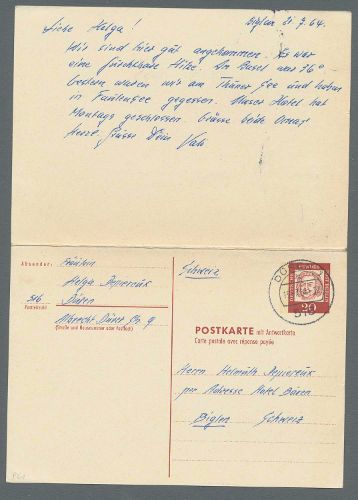 Liebe Helga! Biglen 21.7.64.
Wir sind hier gut angekommen. Es war
eine furchtbare Hitze. In Basel war 36°
Gestern waren wir am Thuner See und haben
in Faulensee gegessen. Unser Hotel hat
Montags geschlossen. Grüsse beide Omas
Herzl. Grüsse Dein Vati
Absender: Fräulein
Helga
516 Düren
Postleitzahl
Albrecht Dürer Str. 9
(Straße und Hausnummer oder Postfach)
Schweiz
20
516
POSTKARTE mit Antwortkarte
Carte postale avec réponse payée
Herrn Helmuth
per Adresse Hotel Bären
Biglen Schweiz